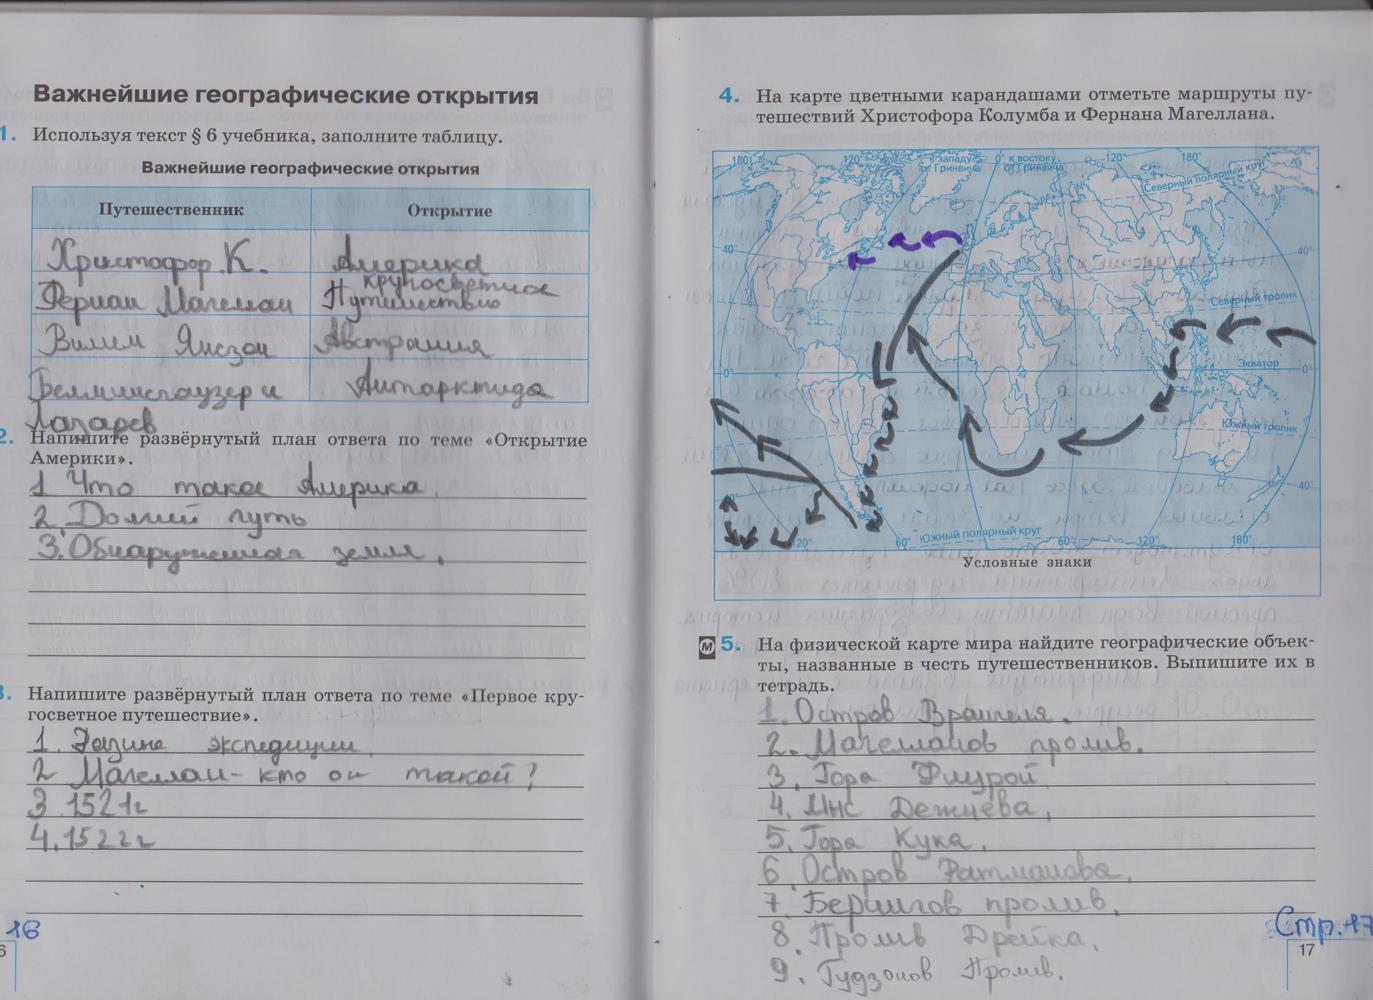 Важнейшие географические открытия
1. Используя текст § 6 учебника, заполните таблицу.
Важнейшие географические открытия
Путешественник Открытие
Христофор.К. Америка
Фернан Магеллан кругосветное Путишествию
Вилим Янсзон Австралия
Беллинсгаузер и Антарктида
Лазарев
2. Напишите развёрнутый план ответа по теме «Открытие
Америки».
1 Что такое Америка.
2. Долгий путь
3. Обнаруженная земля.
3. Напишите развёрнутый план ответа по теме «Первое кру-
госветное путешествие».
1.
экспедиции.
2 Магеллан- кто он такой?
3 1521г
4. 1522г
16
6
4. На карте цветными карандашами отметьте маршруты пу-
тешествий Христофора Колумба и Фернана Магеллана.
180° 120° к западу от Гринвича 0° к востоку от Гринвича 120° 180°
Северный полярный круг
40° 40°
Северный тропик
Экватор
0° 0°
Южный тропик
40° 40°
Южный полярный круг
120° 60° 60° 120° 180°
Условные знаки
М 5. На физической карте мира найдите географические объек-
ты, названные в честь путешественников. Выпишите их в
тетрадь.
1. Остров Врангеля.
2. Магелланов пролив.
3. Гора
4. Мыс Дежнева.
5. Гора Кука.
6. Остров Ратманова.
7. Берингов пролив.
8. Пролив Дрейка.
9. Гудзонов Пролив.
Стр.17
17